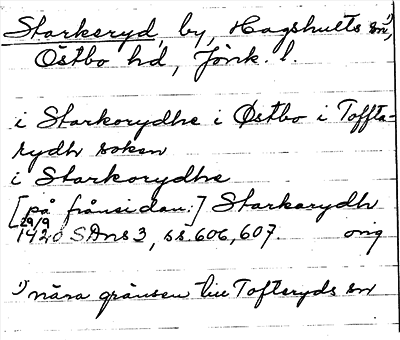 Starkeryd, by, Hagshults sn,¹⁾
Östbo hd, Jönk. l.
i Starkorydhe i Østbo i Toffta-
rydh soken
i Starkorydhe
[på frånsidan:] Starkarydh
29/9
1420 SDns 3, ss. 606, 607. orig
¹⁾ nära gränsen till Tofteryds sn